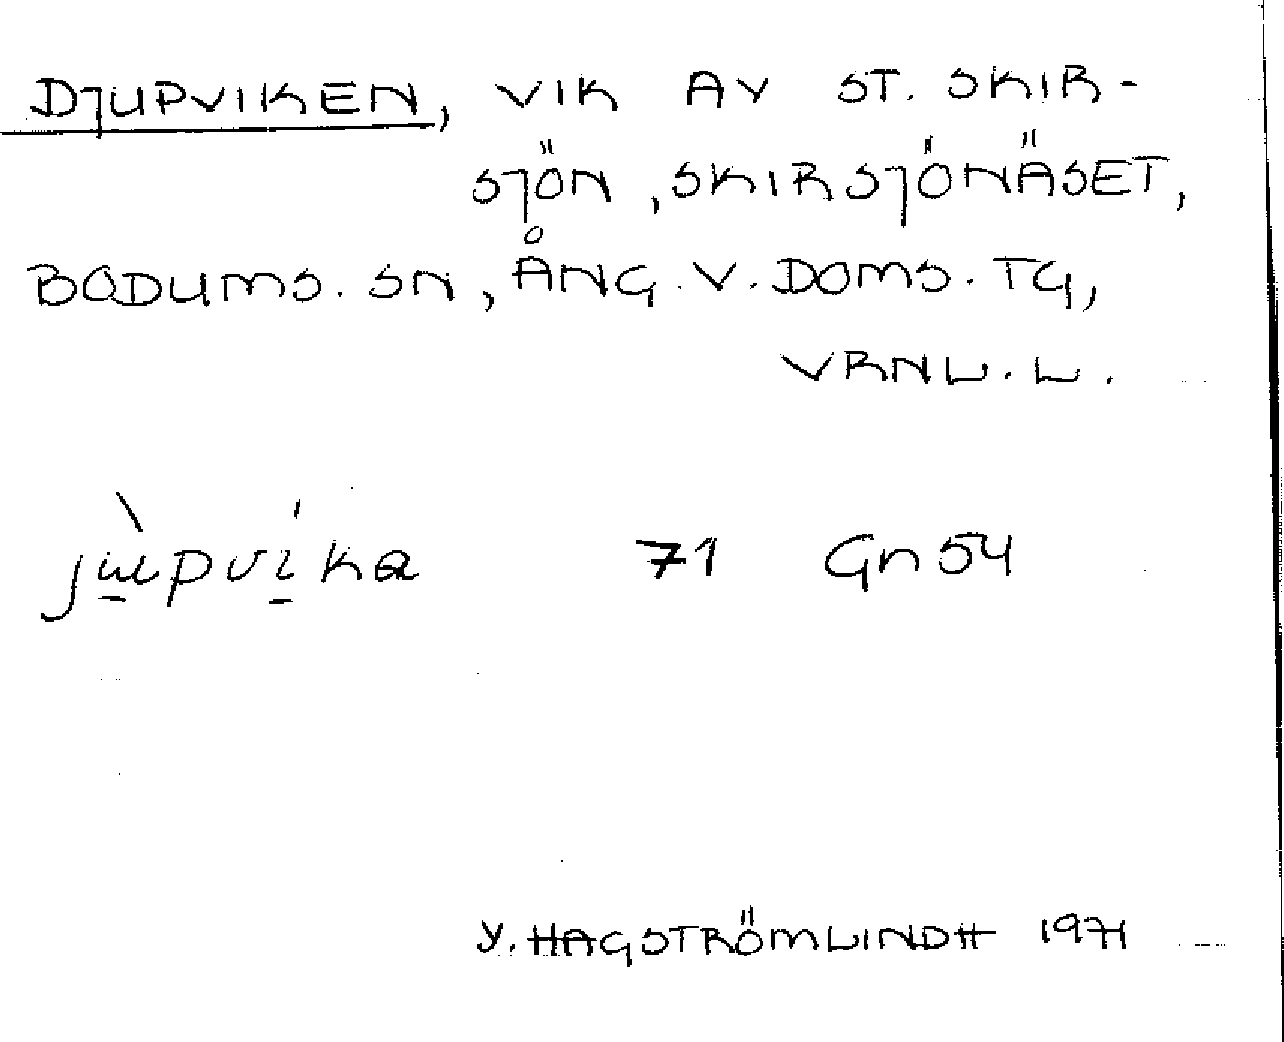 DJUPVIKEN, VIK AV ST. SKIR-
SJÖN, SKIRSJÖNÄSET,
BODUMS. SN, ÅNG. V. DOMS. TG,
VRNL. L.
jùpvíka 71 Gn 54
Y. HAGSTRÖMLINDH 1971